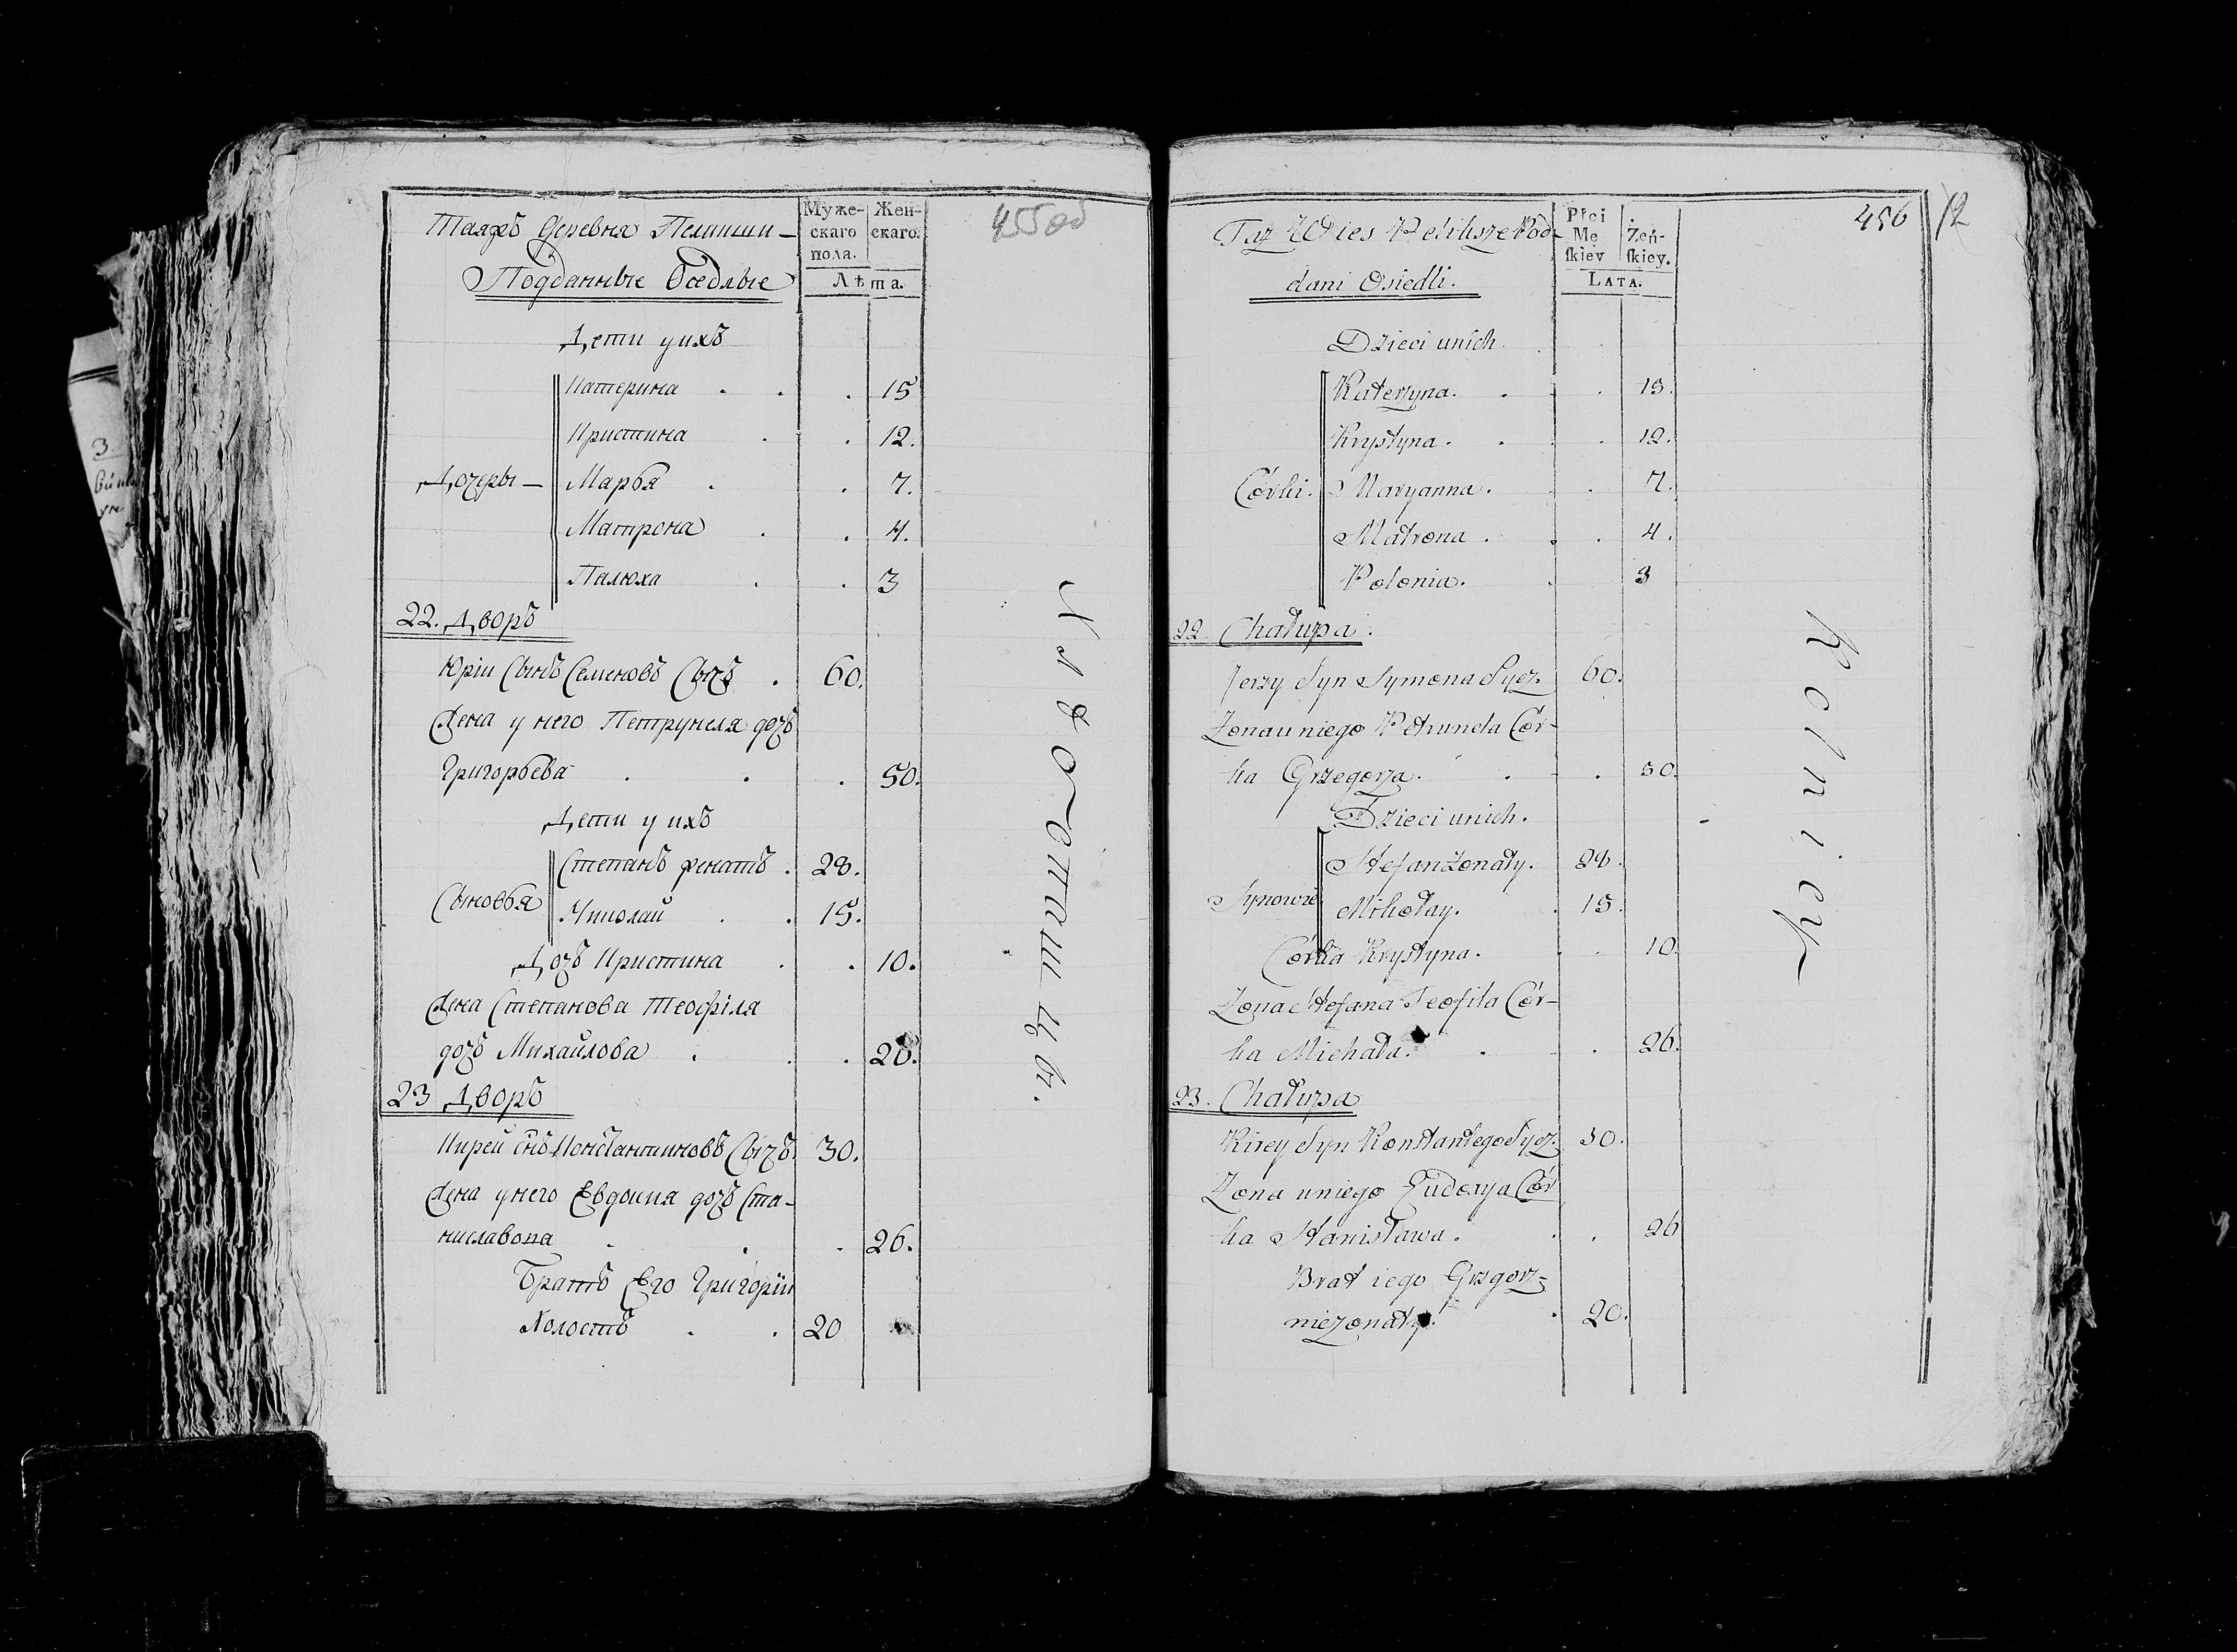 Таяжъ Деревня Пелипши-
Подданные Оседлые
Муже-
скаго
пола.
Жен-
скаго.
Лѣта.
455об
Дети у ихъ
Катерина . . . 15
Кристина . . 12.
Дочеры — Марья . . 7.
Матрона . . 4.
Палюха . . 3
22. Дворъ
Юріи Сынъ Семеновъ Сычъ . 60.
Жена у него Петрунеля дочъ
Григорьева . . . 50.
Дети у ихъ
Степанъ женатъ . 28.
Сыновья
Николай . . 15.
Дочъ Кристина . . 10.
Жена Степанова Теофіля
дочъ Михайлова . . . 26.
23 Дворъ
Кирей снъ Константиновъ Сычъ 30.
Жена у него Евдокия дочъ Ста-
ниславова . . . 26.
Братъ Его Григорій
Холостъ . . 20
Хлѣбопашцы.
456 12
Taż Wies Peliksze Pod-
dani Osiedli.
Płci
Mę
ſkiey
Żeń-
ſkiey.
LATA.
Dzieci unich.
Katerzyna. . . . 15.
Krystyna. . . . 12.
Córki. Maryanna. . . 7.
Matrona . . . 4.
Polonia. . 3
22. Chałupa.
Jerzy Syn Symona Sycz. 60.
Zona u niego Petrunela Cór-
ka Grzegorza. . . 50.
Dzieci unich.
Stefan Zonaty. 28.
Synowie
Mikołay. . 15.
Córka Krystyna. . . 10.
Zona Stefana Teofila Cór-
ka Michała. . . 26.
23. Chałupa
Kirey Syn Konstantego Sycz. 30.
Zona uniego Eudoxya Cór
ka Stanisława. . . 26
Brat iego Grzgorz-
niezonaty. . 20.
Rolnicy